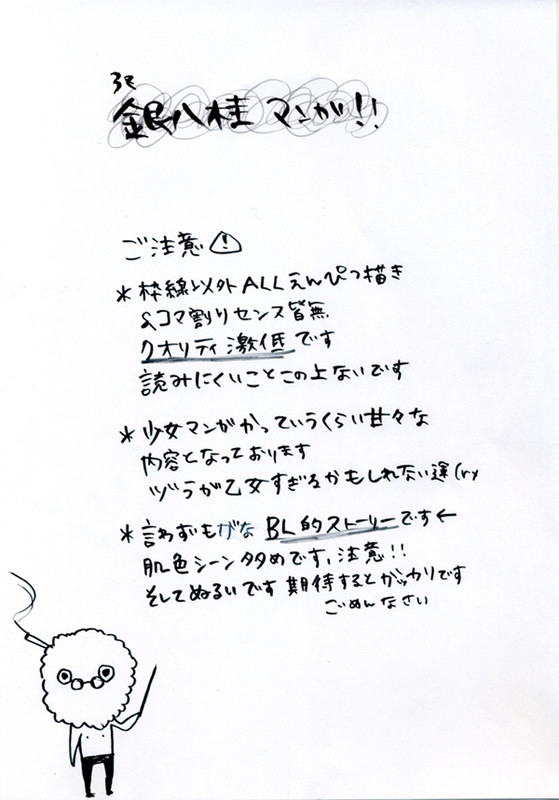 3Z
銀八桂 マンガ!!
ご注意
＊枠線以外ALLえんぴつ描き
&コマ割りセンス皆無
クオリティ激低です
読みにくいことこの上ないです
＊少女マンガかっていうくらい甘々な
内容となっております
ヅラが乙女すぎるかもしれない運(ry
＊言わずもがなBL的ストーリーです←
肌色シーン多めです、注意!!
そしてぬるいです 期待するとガッカリです
ごめんなさい